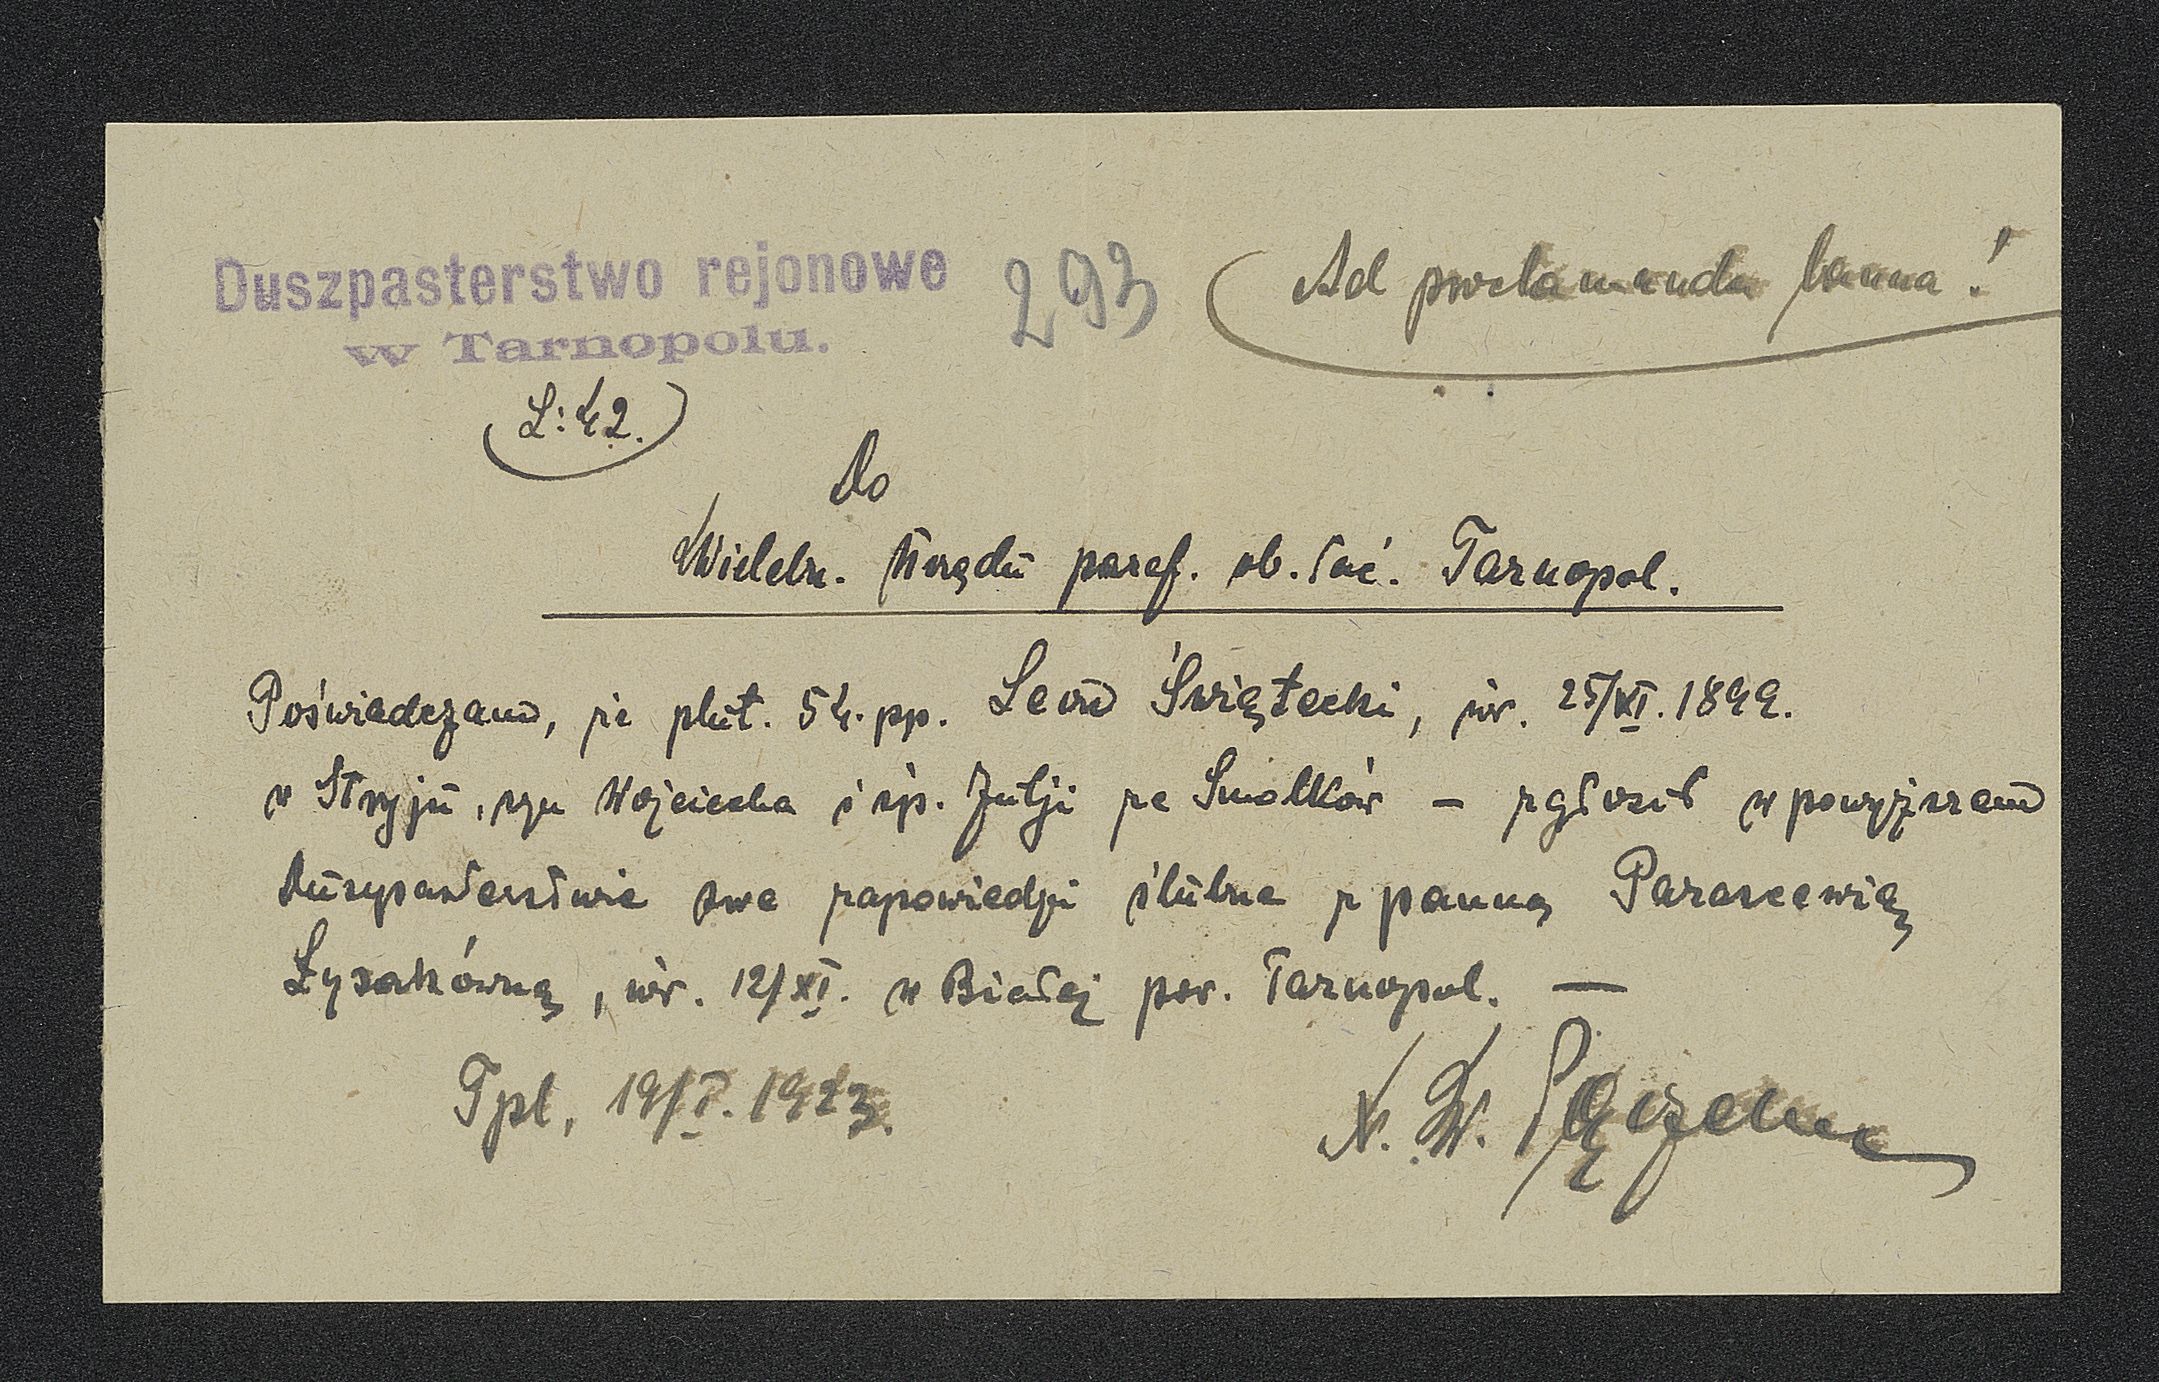 Duszpasterstwo rejonowe
w Tarnopolu.
293
Ad proclamanda banna!
L: 42.
Do
Wielebn. Urzędu paraf. ob. łać. Tarnopol.
Poświadczam, że plut. 54. pp. Leon Świątecki, ur. 25/XI. 1899.
w Stryju, syn Wojciecha i śp. Julji ze Smolków – zgłosił w powyższem
duszpasterstwie swe zapowiedzi ślubne z panną Parascewią
Łysakówną, ur. 12/XI. w Białej pow. Tarnopol. —
Tpl, 19/I. 1923.